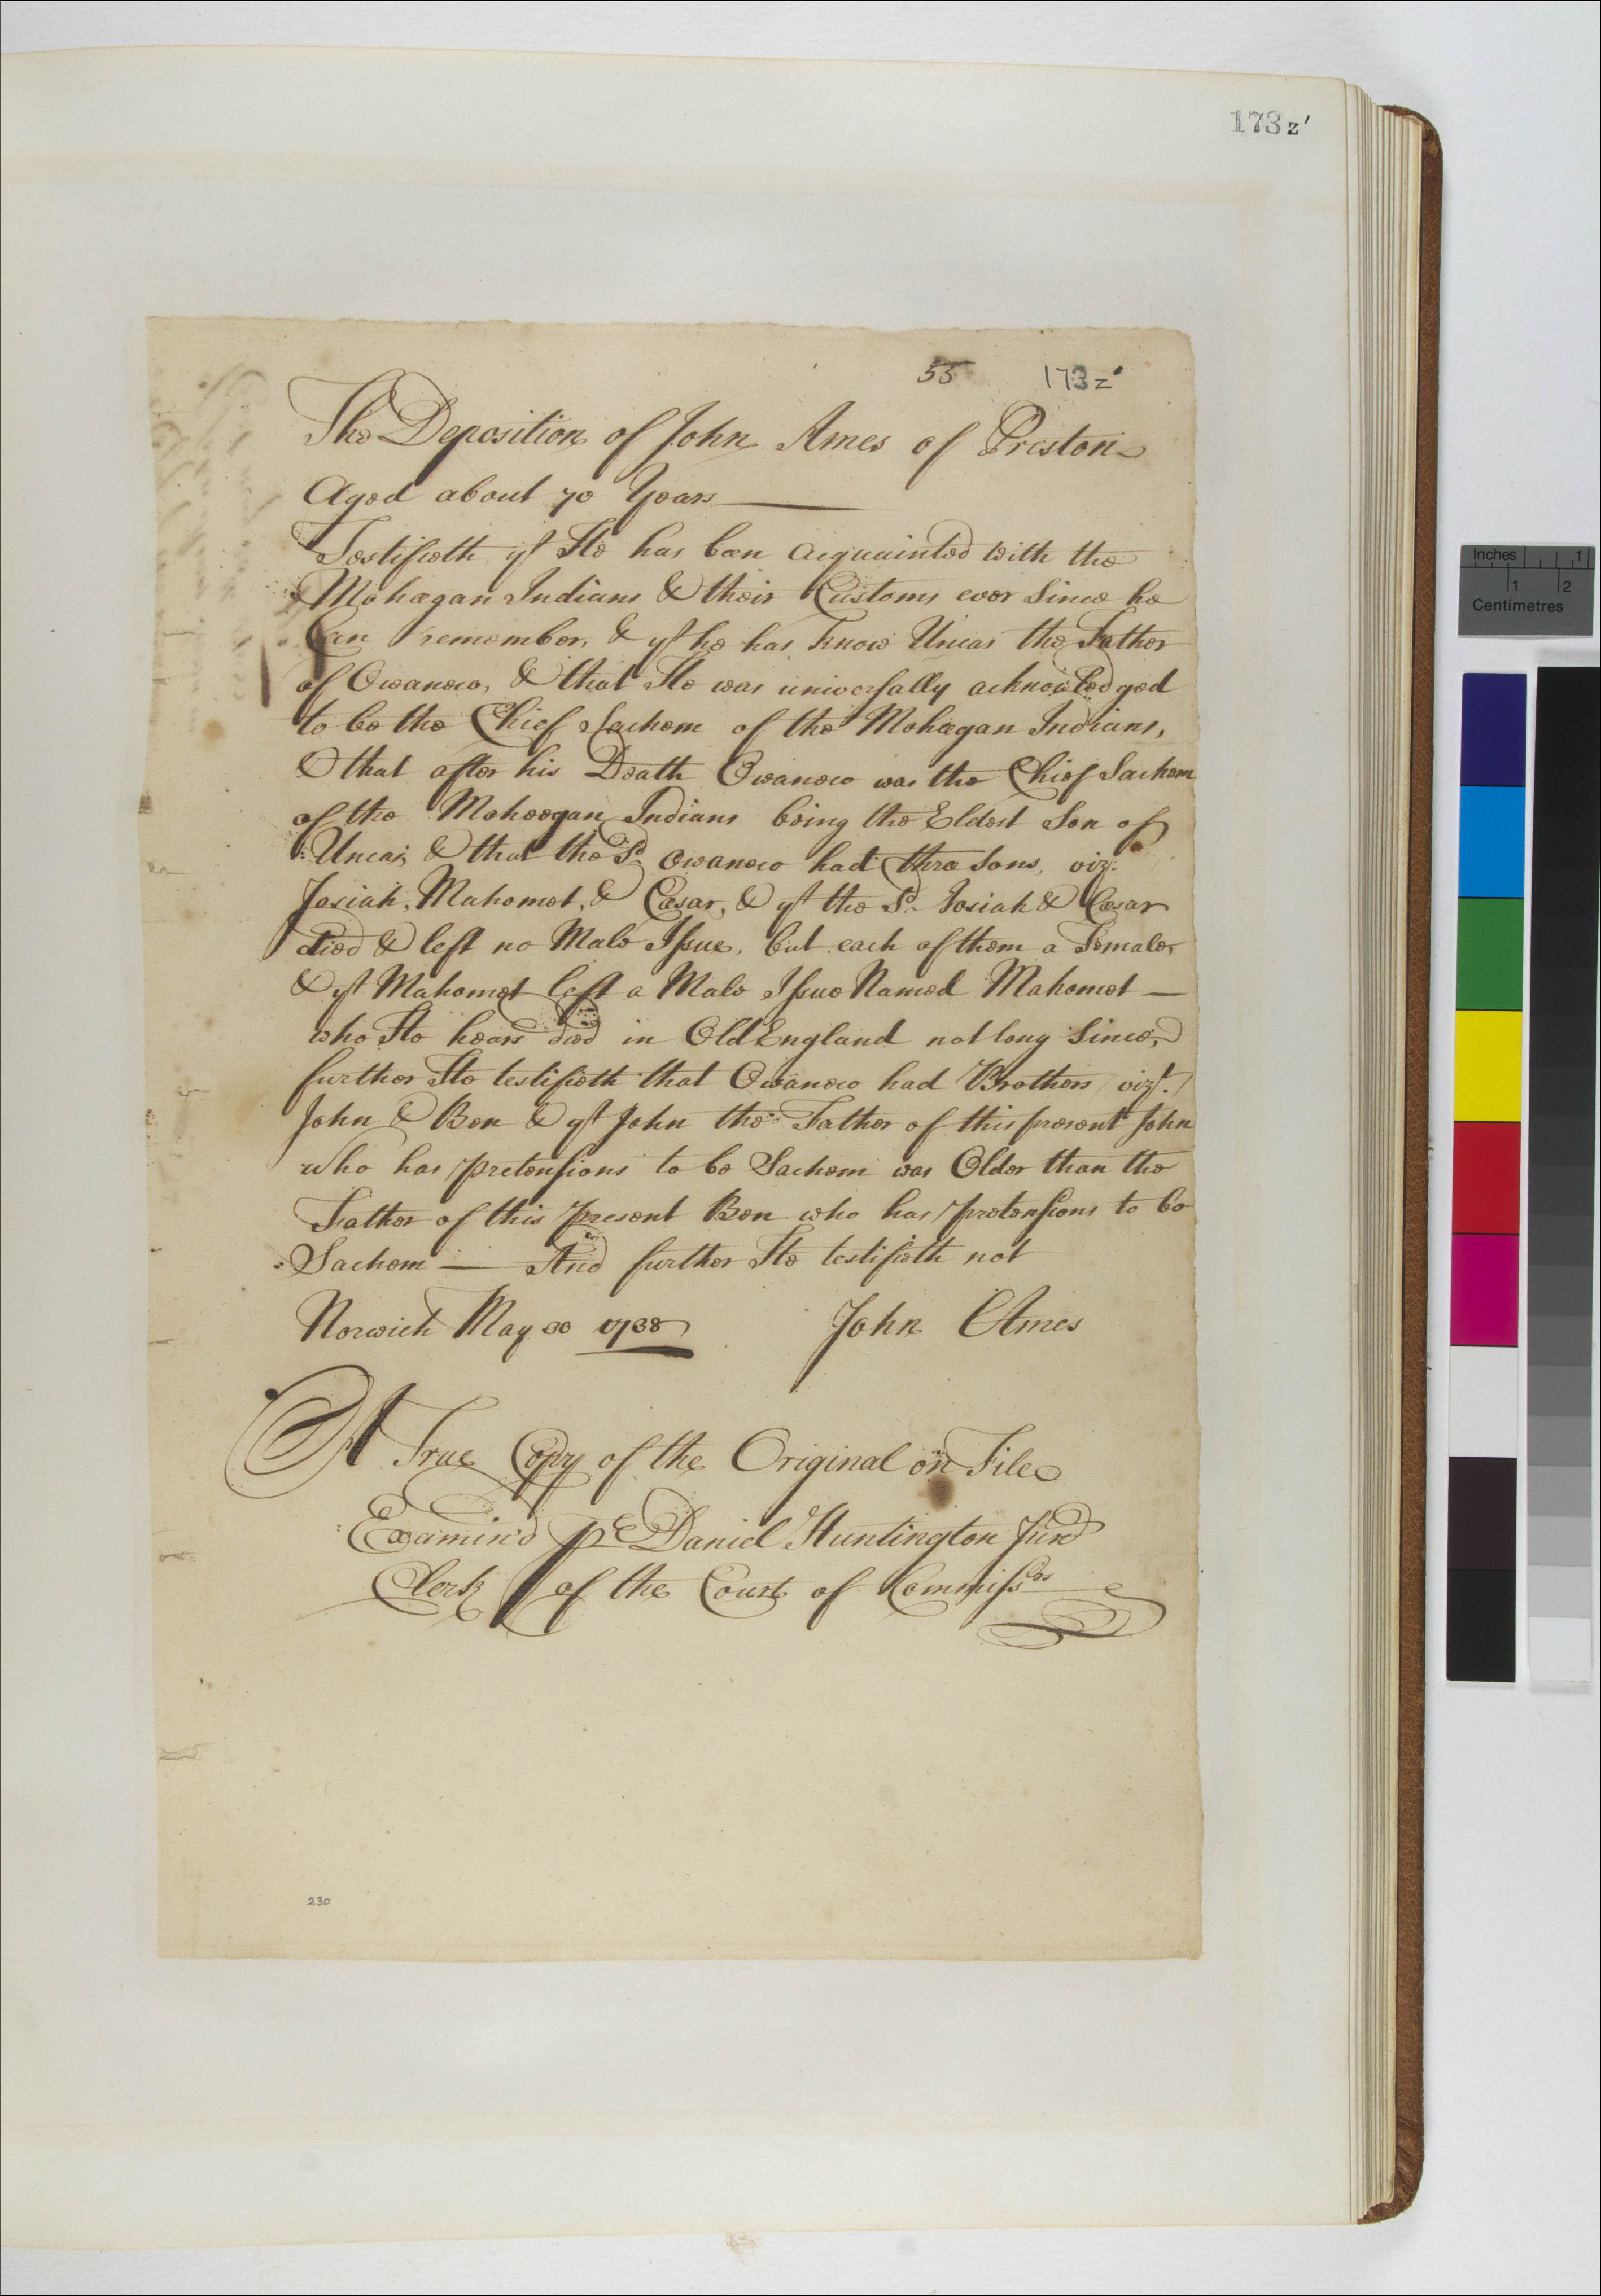 173z'
55 173z'
The Deposition of John Ames of Preston
Aged about 70 Years —
Testifieth yt He has been acquainted with the
Mohagan Indians & their Customs ever Since he
Can remember, & yt he has know Uncas the Father
of Owaneco, & that He was universally acknowledged
to be the Chief Sachem of the Mohagan Indians,
& that after his Death Owaneco was the Chief Sachem
of the Moheegan Indians being the Eldest Son of
Uncas, & that the Sd. Owaneco had three Sons, viz.
Josiah, Mahomet, & Cæsar, & yt the Sd. Josiah & Cæsar
died & left no Male Issue, but each of them a Female,
& yt Mahomet left a Male Issue Named Mahomet —
who He hears died in Old England not long Since,
further He testifieth that Owaneco had Brothers vizt.
John & Ben & yt John the Father of this present John
who has pretensions to be Sachem was Older than the
Father of this present Ben who has pretensions to be
Sachem — And further He testifieth not
Norwich May 1738 John Ames
A True Copy of the Original on File
Examin'd pr Daniel Huntington Junr
Clerk of the Court of Commissrs
230
Inches 1
1 2
Centimetres